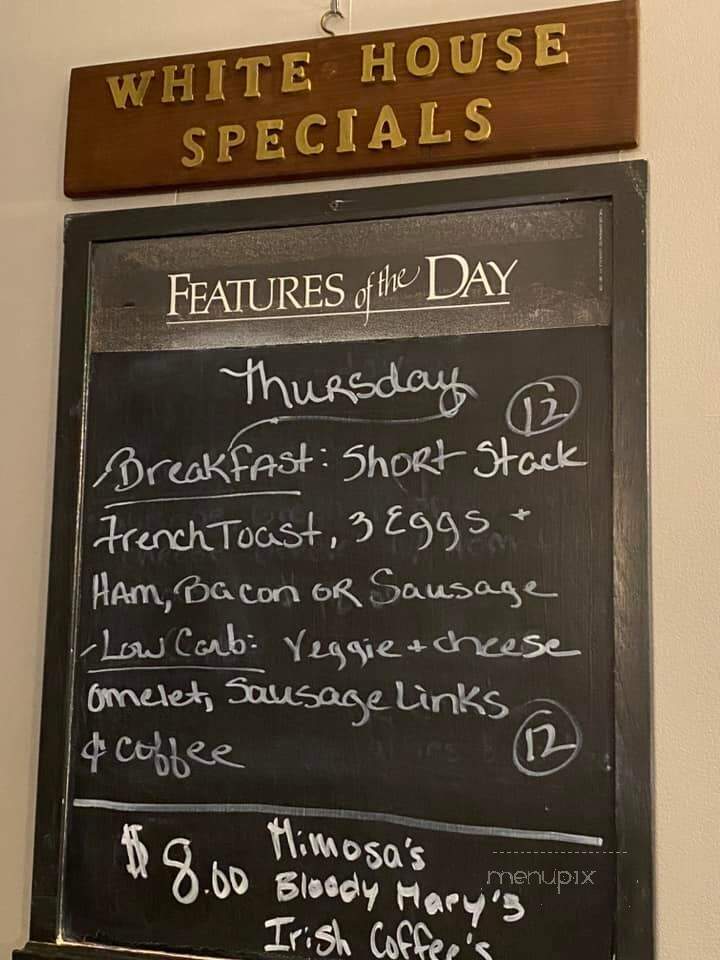 WHITE HOUSE
SPECIALS
FEATURES of the DAY
Thursday
12
-Breakfast: Short Stack
French Toast, 3 Eggs +
Ham, Bacon OR Sausage
-Low Carb: Veggie + cheese
omelet, Sausage Links
& coffee
12
$8.00
Mimosa's
Bloody Mary's
Irish Coffee's
menupix